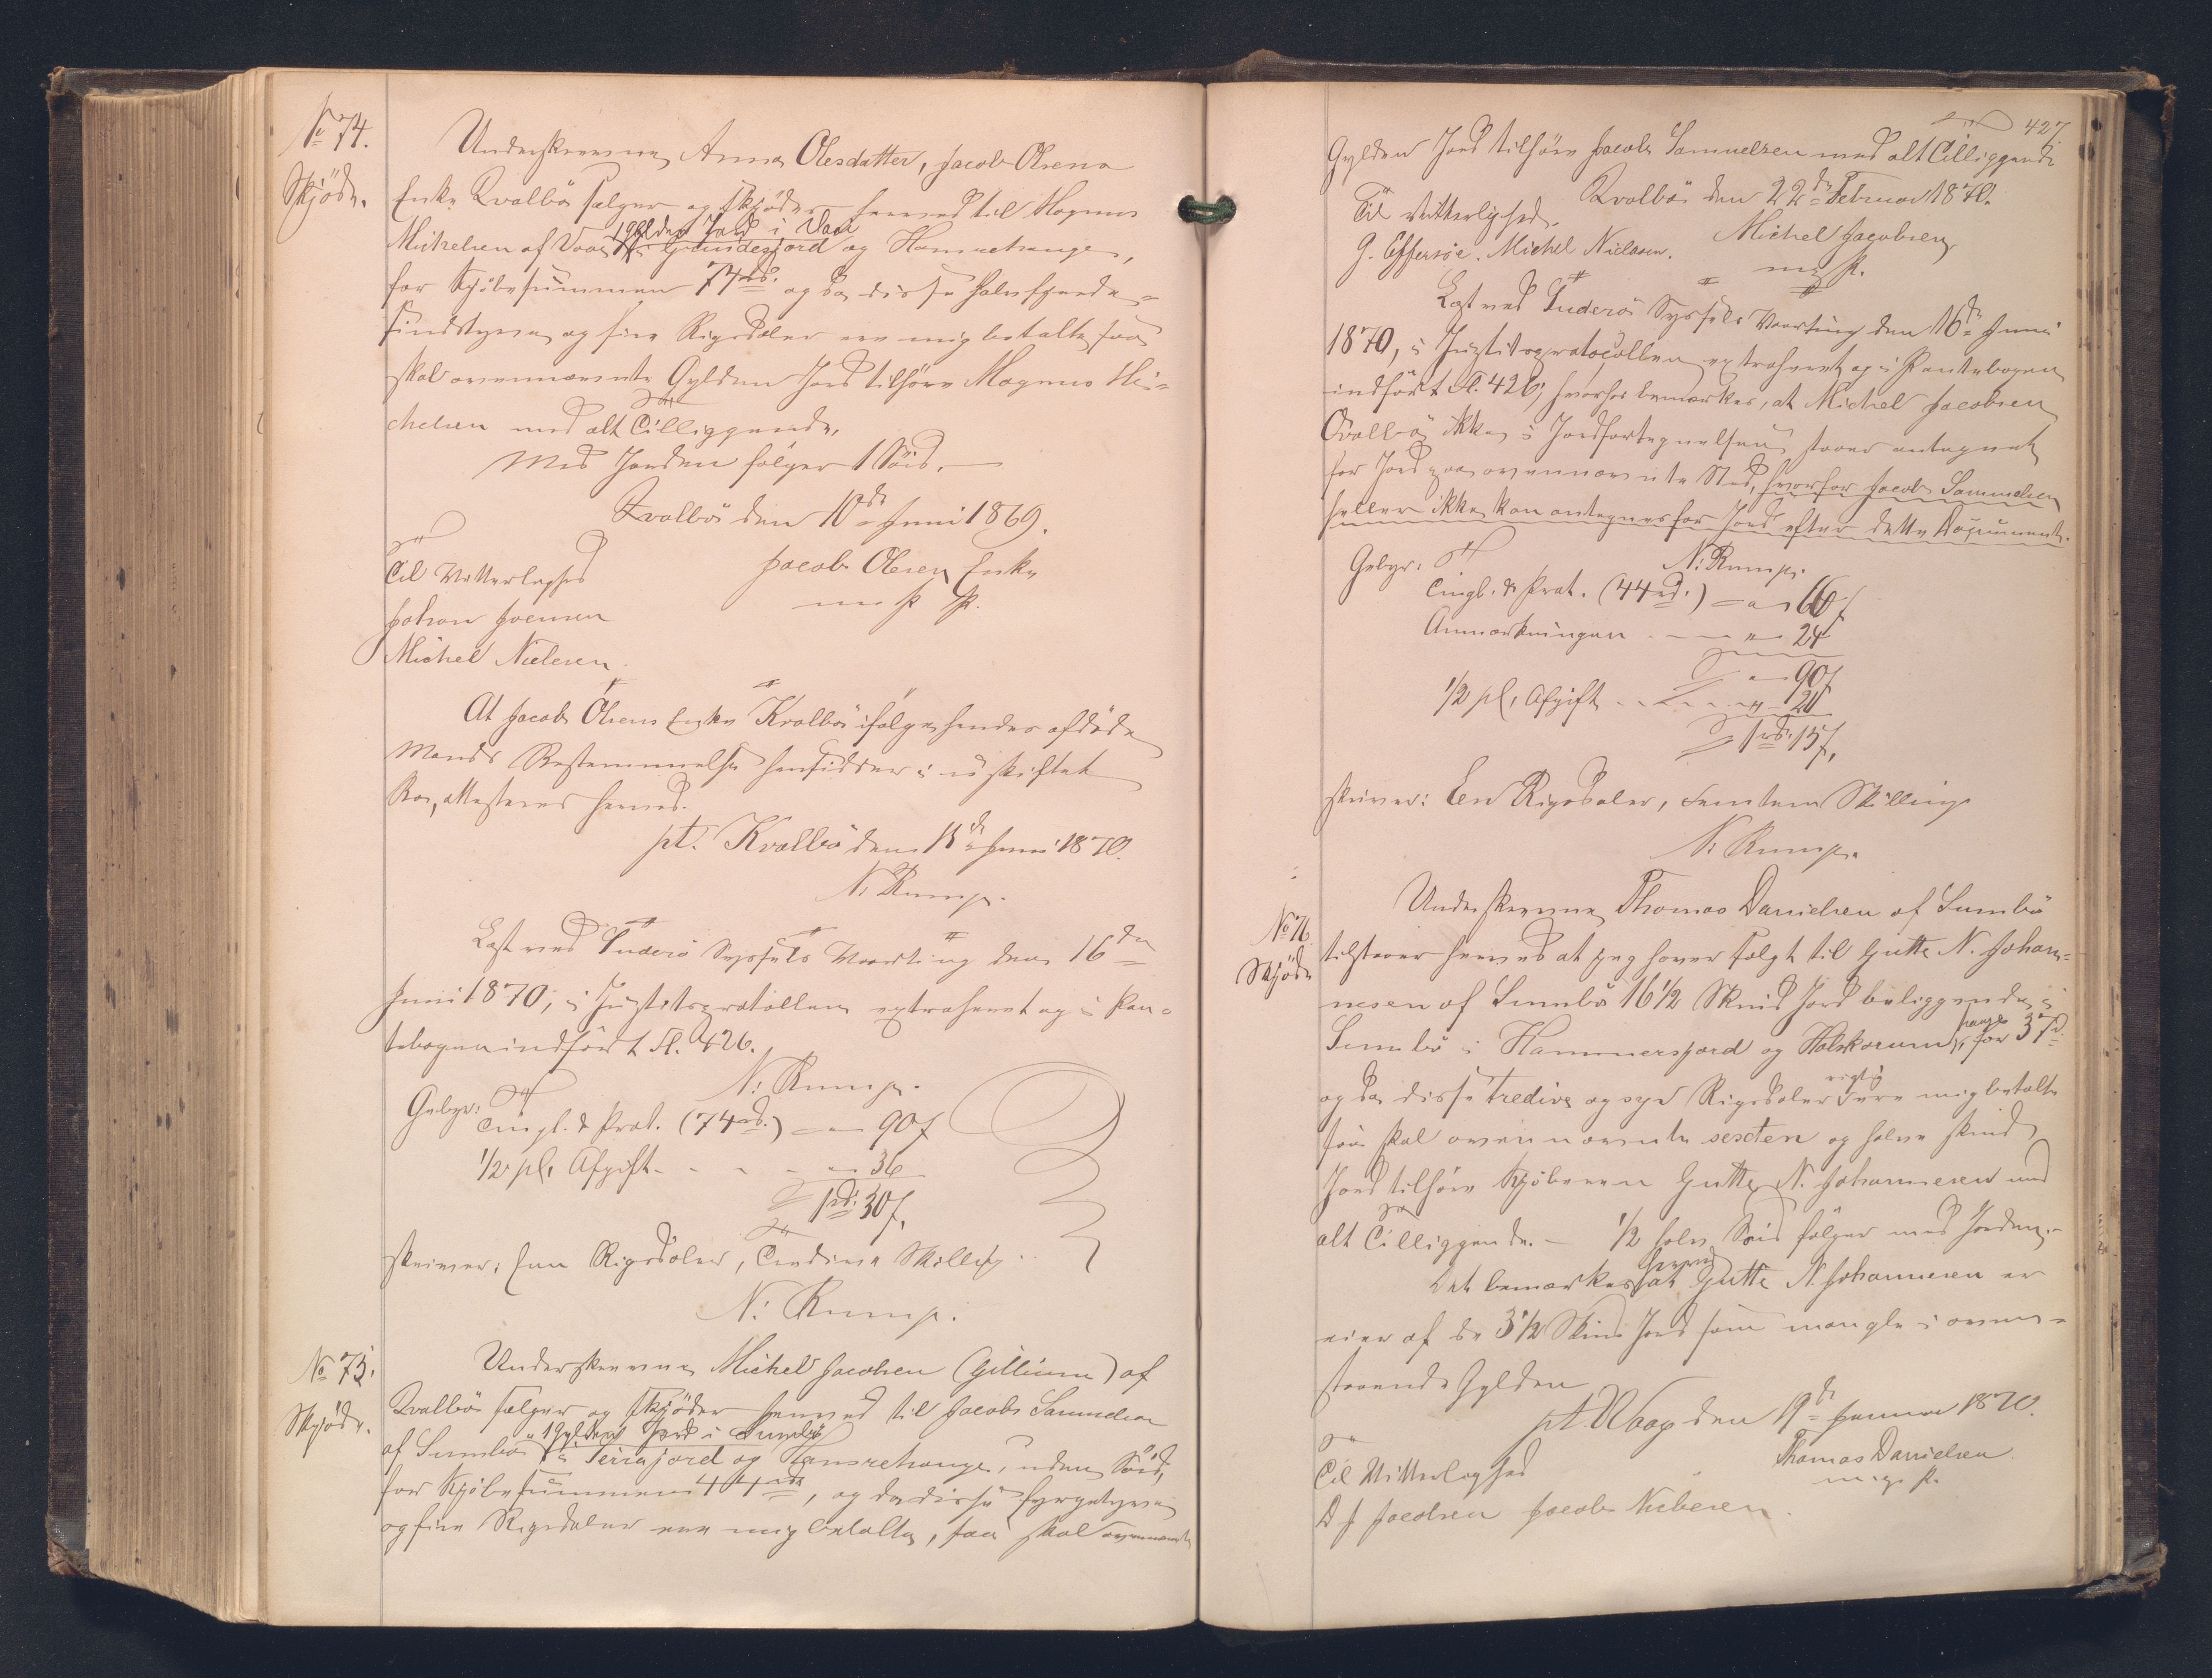 No 74.
Skjöde.
Underskrevne Anna Olesdatter, Jacob Olsens
Enke Qvalbö sælger og skjöder herved til Magnus
Michelsen af Vaag 1 Gylden Jord i Vaag i Grundesjord og Hamrehauge,
for Kjöbesummen 74 rd. og da disse halvfjerde-
sindstyve og fire Rigsdaler ere mig betalte saa
skal ovennævnte Gylden Jord tilhöre Magnus Mi-
chelsen med alt Tilliggende.
Med Jorden fölger 1 Söid.
Qvalbö den 10de Juni 1869.
Til Vitterlighed
Jacob Olsens Enke
m. f. P.
Johan Joensen
Michel Nielsen.
At Jacob Olsens Enke Kvalbö ifölge hendes afdöde
Mands Bestemmelse hensidder i uskiftet
Bo, attesteres herved.
pt. Kvalbö den 15de Juni 1870.
N: Rump.
Læst ved Suderö Syssels Vaarting den 16de
Juni 1870, i Justitsprotokollen extraheret og i Pan-
tebogen indfört Fl. 426.
N: Rump.
Gebyr:
Tingl. & Prot. (74 rd.) — " — 90 f
1/2 pCt Afgift - - - " — 36
1 rd. 30 f.
skriver: Een Rigsdaler, Tredive Skilling.
N: Rump.
No 75.
Skjöde.
Underskrevne Michel Jacobsen (Gillium) af
Qvalbö sælger og skjöder herved til Jacob Samuelsen
af Sumbö 1 Gylden Jord i Sumbö i Seriajord og Hamrehauge, uden Söid,
for Kjöbesummen 44 rd, og da disse fyrgetyve
og fire Rigsdaler ere mig betalte, saa skal ovennævnte
427.
Gylden Jord tilhöre Jacob Samuelsen med alt Tilliggende
Qvalbö den 22de Februar 1870.
Til Vitterlighed.
Michel Jacobsen
G. Effersöe. Michel Nielsen.
m. f. P.
Læst ved Suderö Syssels Vaarting den 16de Juni
1870, i Justitsprotocollen extraheret og i Pantebogen
indfört Fl. 426; hvorhos bemærkes, at Michel Jacobsen
Qvalbö ikke i Jordfortegnelsen staaer antegnet
for Jord paa ovennævnte Sted, hvorfor Jacob Samuelsen
heller ikke kan antegnes for Jord efter dette Document.
N: Rump.
Gebyr:
Tingl. & Prot. (44 rd.) — " — 66 f
Anmærkningen - — " — 24
" — 90 f
1/2 pCt. Afgift - - - " — 21
1 rd. 15 f.
skriver: En Rigsdaler, Femten Skilling
N: Rump.
No 76
Skjöde
Underskrevne Thomas Danielsen af Sumbö
tilstaaer herved at jeg haver sælgt til Gutte N. Johan-
nesen af Sumbö 16 1/2 Skind Jord beliggende i
Sumbö i Hammersjord og Halskorum hauge for 37 rd.
og da disse tredive og syv Rigsdaler rigtig ere mig betalte
saa skal ovennævnte sexten og halve Skind
Jord tilhöre Kjöberen Gutte N. Johannesen med
alt Tilliggende. — 1/2 halv Söid fölger med Jorden. -
Det bemærkes herved at Gutte N. Johannesen er
eier af de 3 1/2 Skind Jord som mangle i oven-
staaende Gylden
pt. Waag den 19de Januar 1870.
Til Vitterlighed
Thomas Danielsen
m. f. P.
D J Jacobsen Jacob Nielsen.